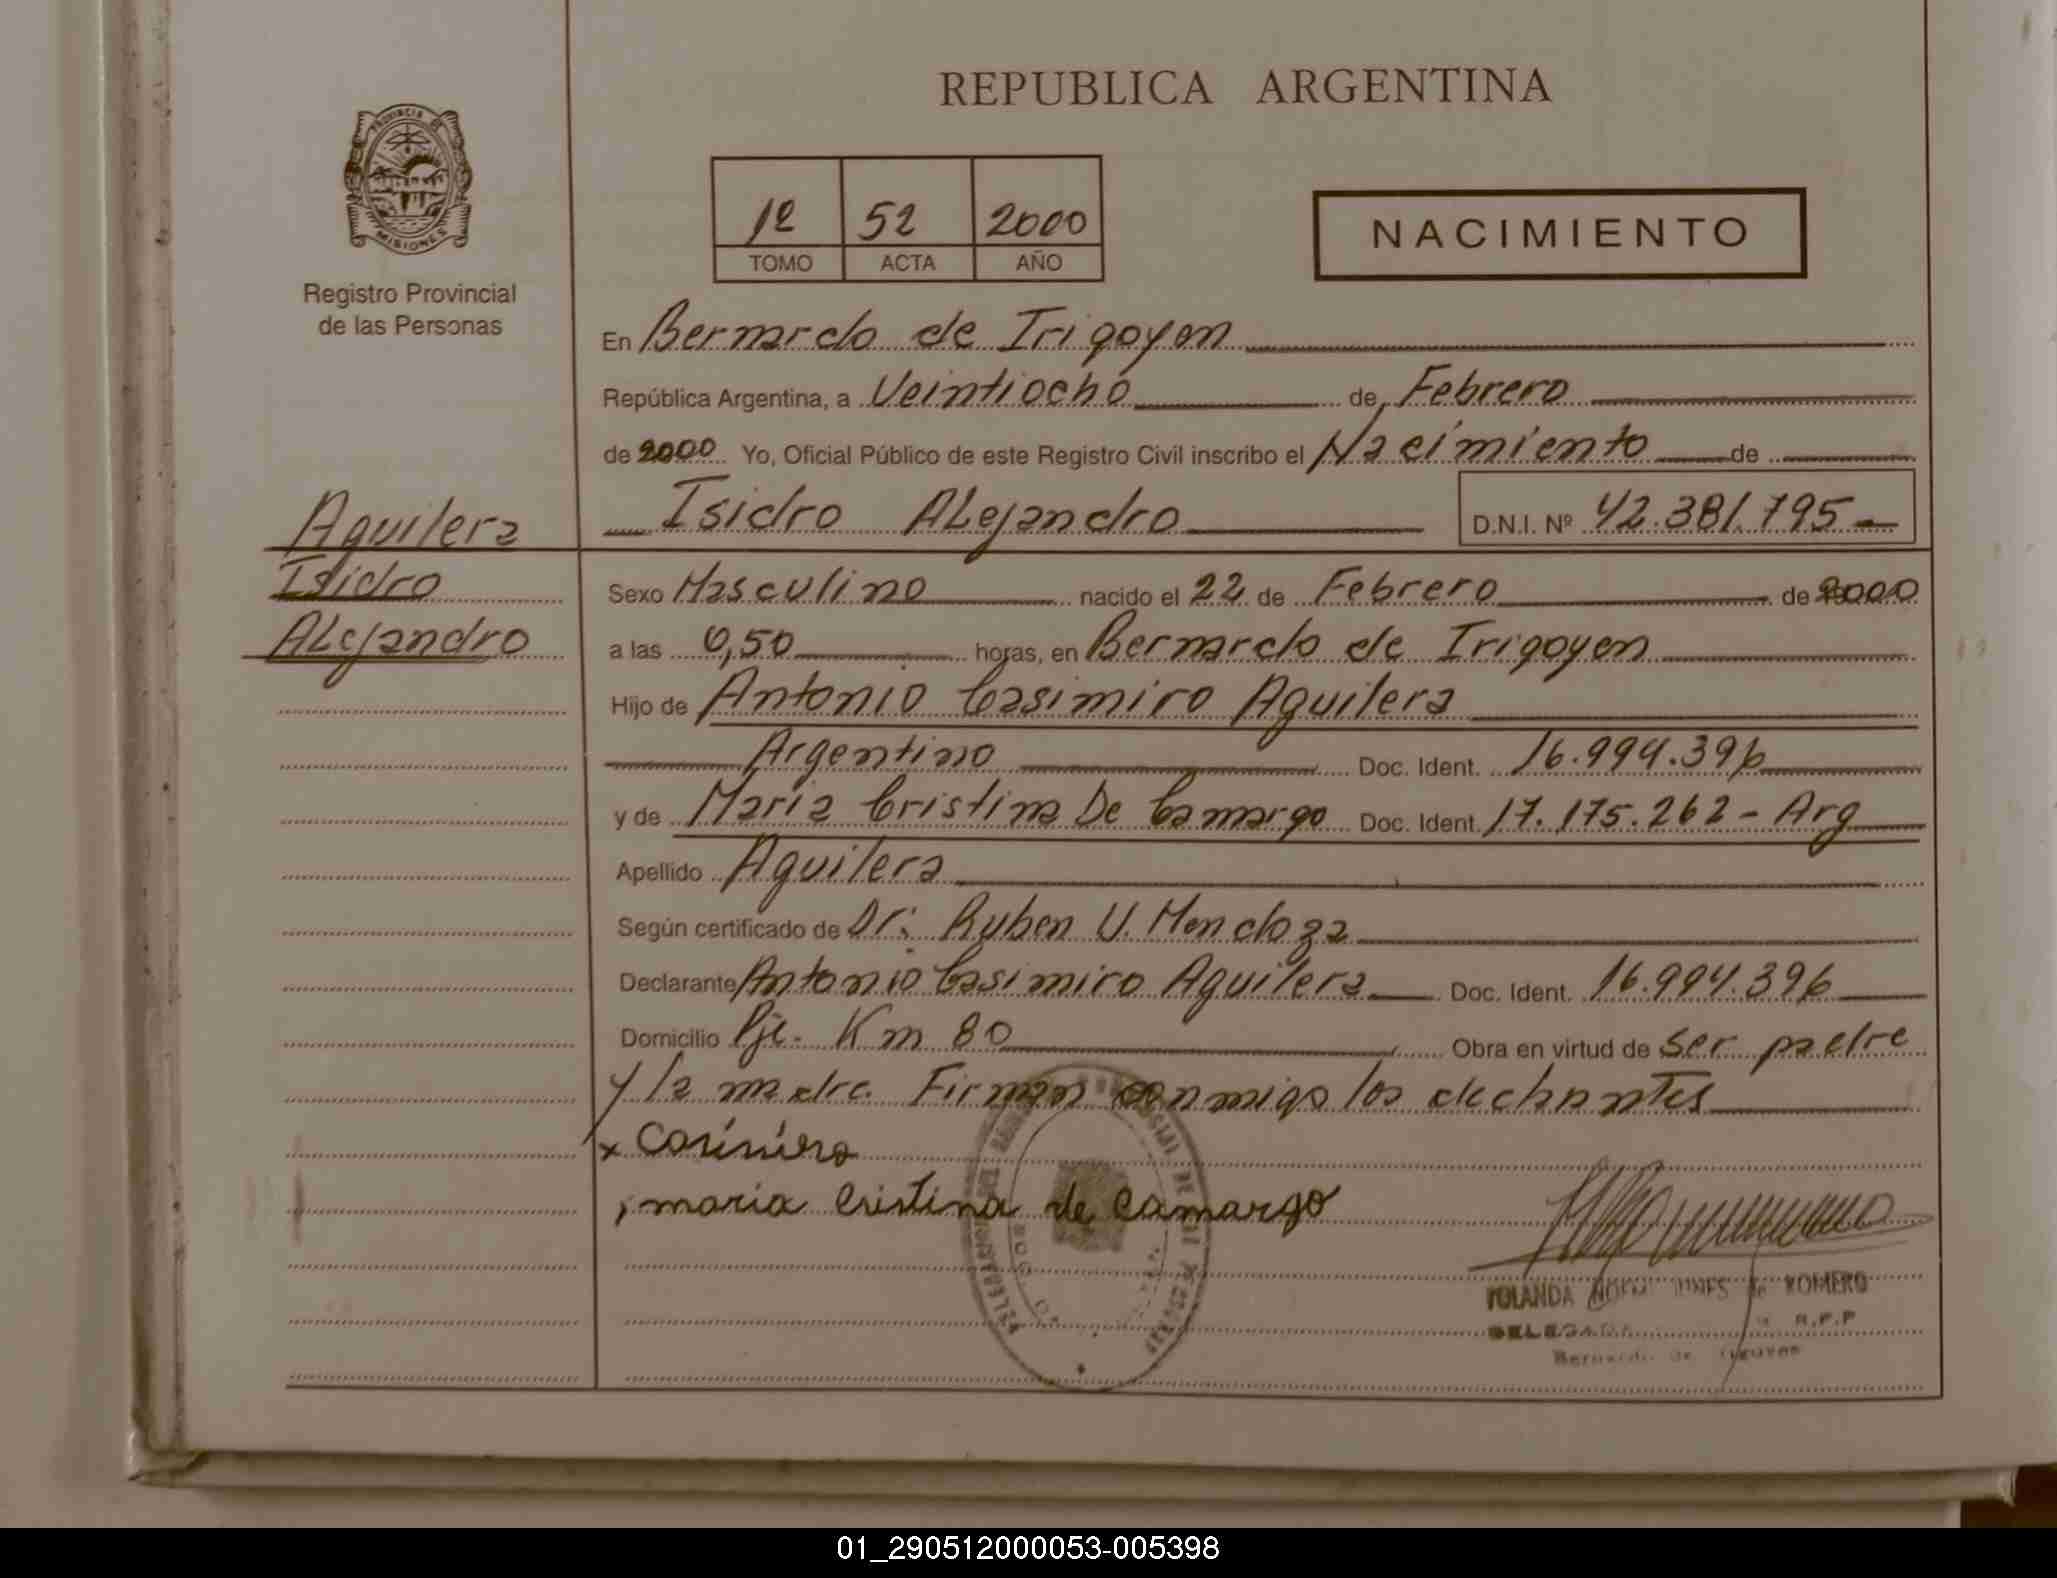 REPUBLICA ARGENTINA
PROVINCIA DE
MISIONES
Registro Provincial
de las Personas
1º 52 2000
TOMO ACTA AÑO
NACIMIENTO
En Bernardo de Irigoyen
República Argentina, a Veintiocho de Febrero
de 2000 Yo, Oficial Público de este Registro Civil inscribo el Nacimiento de
Isidro Alejandro D.N.I. Nº 42.381.795
Aguilera
Isidro
Alejandro
Sexo Masculino nacido el 22 de Febrero de 2000
a las 0,50 horas, en Bernardo de Irigoyen
Hijo de Antonio Casimiro Aguilera
Argentino Doc. Ident. 16.994.396
y de Maria Cristina De Camargo Doc. Ident. 17.175.262 - Arg
Apellido Aguilera
Según certificado de Dr: Ruben U. Mendoza
Declarante Antonio Casimiro Aguilera Doc. Ident. 16.994.396
Domicilio Pje. Km 80 Obra en virtud de ser padre
y la madre. Firman conmigo los
x
maria Cristina de Camargo
YOLANDA de ROMERO
DELEGADA R.P.P
Bernardo de Irigoyen
01_290512000053-005398